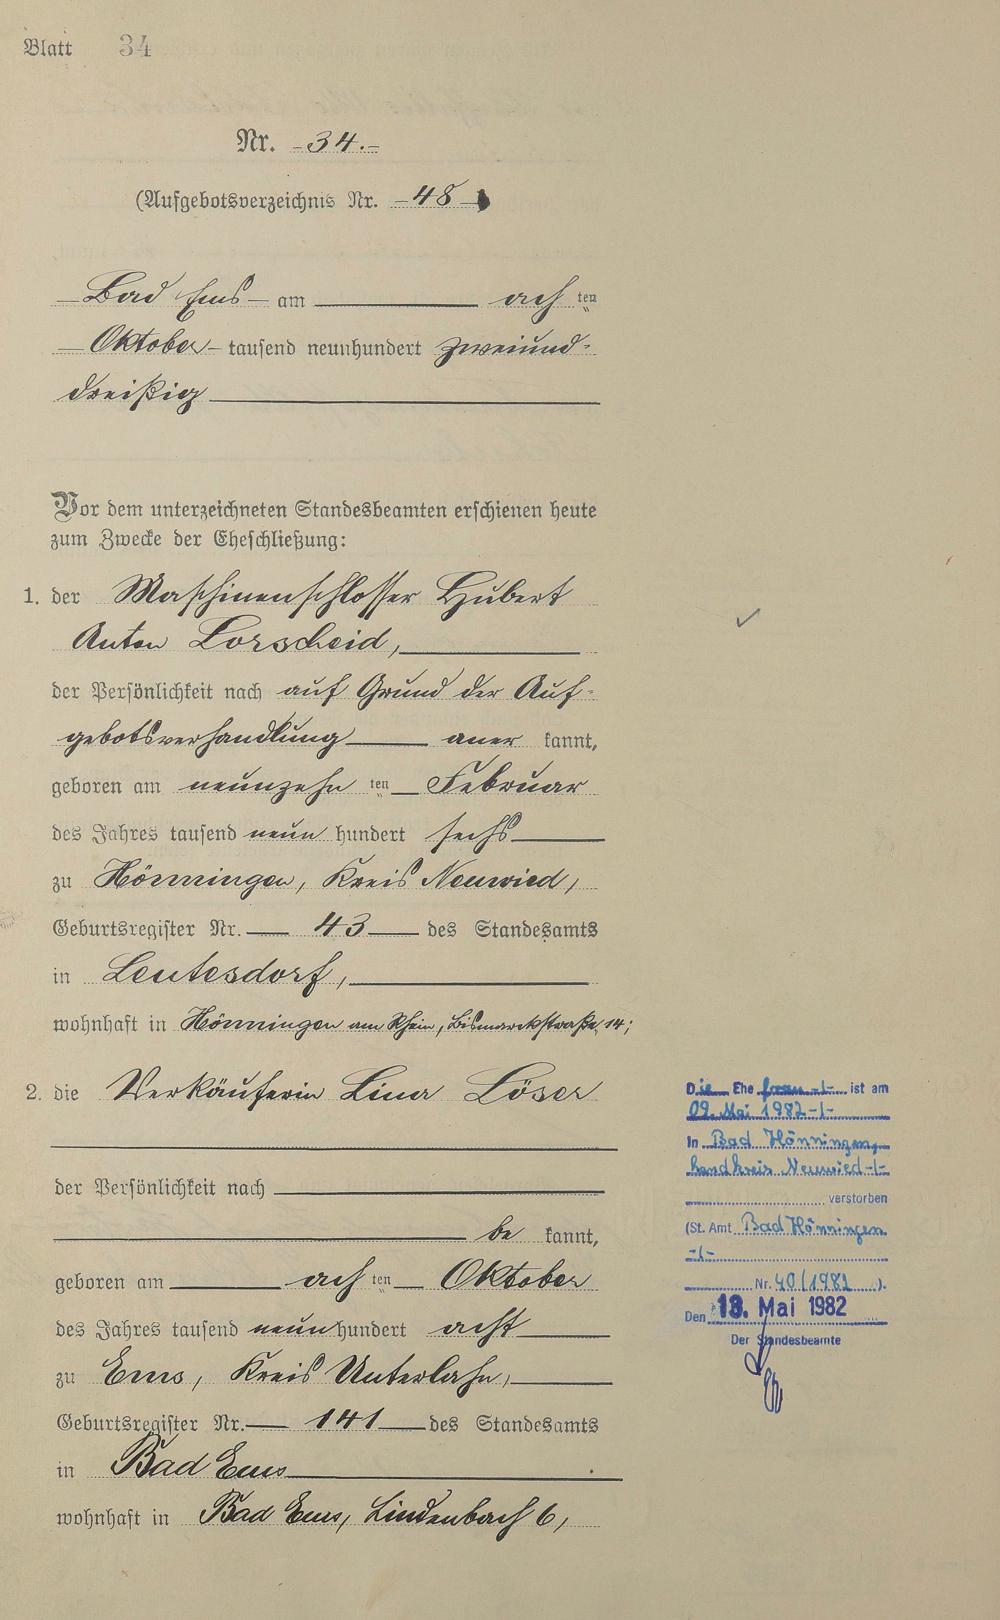 Blatt 34
Nr. -34.-
(Aufgebotsverzeichnis Nr. -48-)
-Bad Ems- am ach ten
-Oktober- tausend neunhundert zweiund-
dreißig
Vor dem unterzeichneten Standesbeamten erschienen heute
zum Zwecke der Eheschließung:
1. der Maschinenschlosser Hubert
Anton Lorscheid,
der Persönlichkeit nach auf Grund der Auf-
gebotsverhandlung aner kannt,
geboren am neunzehn ten Februar
des Jahres tausend neun hundert sechs
zu Hönningen, Kreis Neuwied,
Geburtsregister Nr. 43 des Standesamts
in Leutesdorf,
wohnhaft in Hönningen am Rhein, Bismarckstraße 14;
2. die Verkäuferin Lina Löser
der Persönlichkeit nach
be kannt,
geboren am ach ten Oktober
des Jahres tausend neun hundert acht
zu Ems, Kreis Unterlahn,
Geburtsregister Nr. 141 des Standesamts
in Bad Ems
wohnhaft in Bad Ems, Lindenbach 6,
Die Ehe frau -/- ist am
09. Mai 1982 -/-
In Bad Hönningen,
Landkreis Neuwied -/-
verstorben
(St. Amt Bad Hönningen
-/-
Nr. 40/1982).
Den 13. Mai 1982
Der Standesbeamte